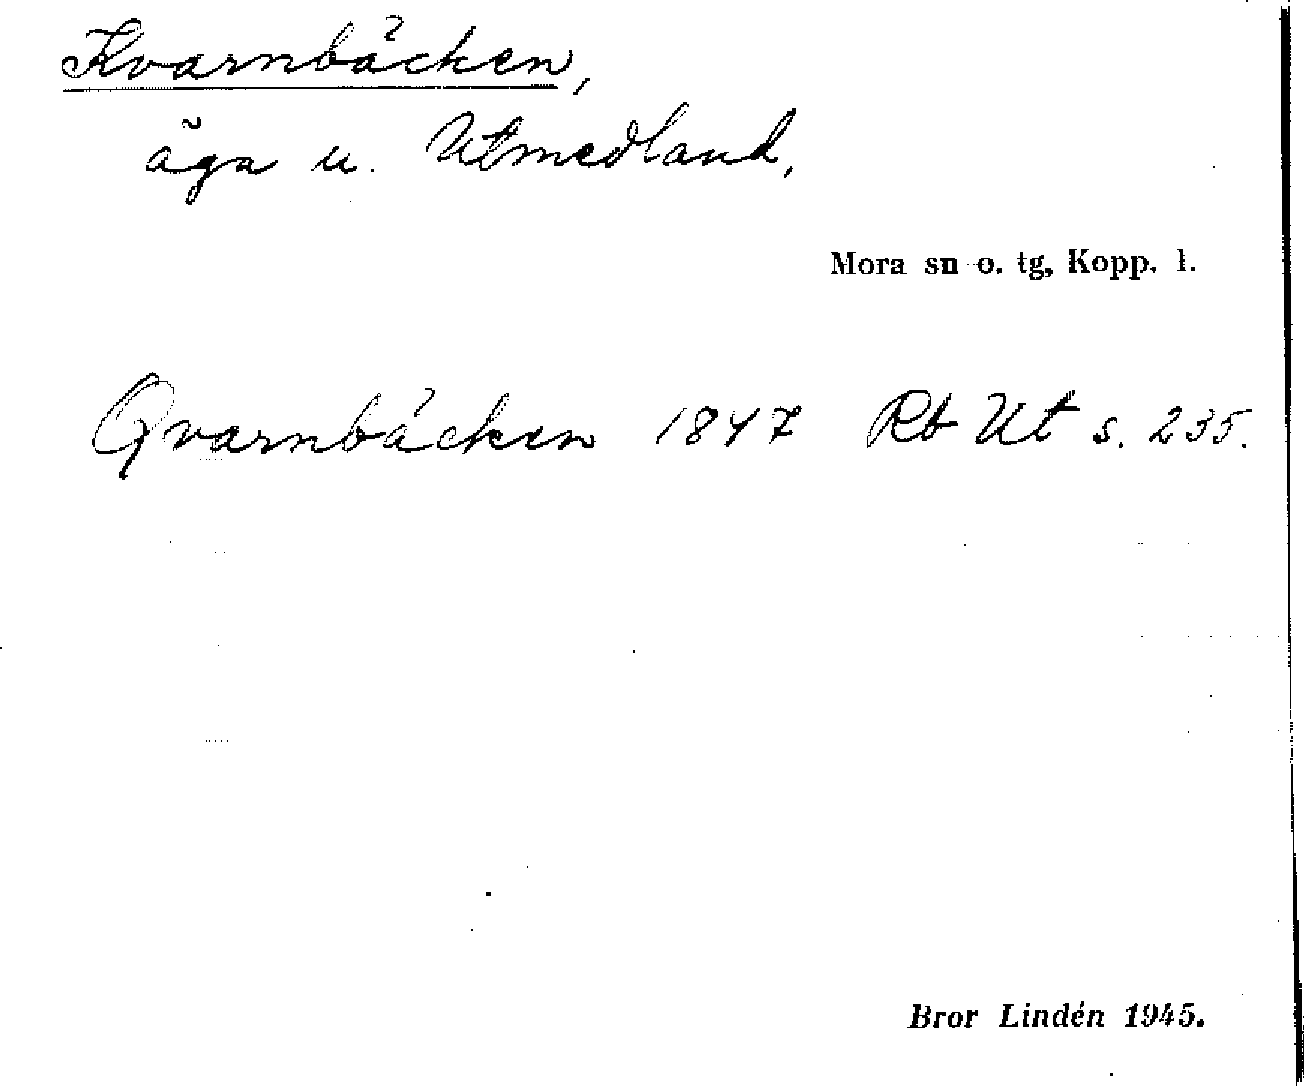 Kvarnbäcken,
äga u. Utmedland,
Mora sn o. tg, Kopp. l.
Qvarnbäcken 1847 Rb Ut s. 235.
Bror Lindén 1945.